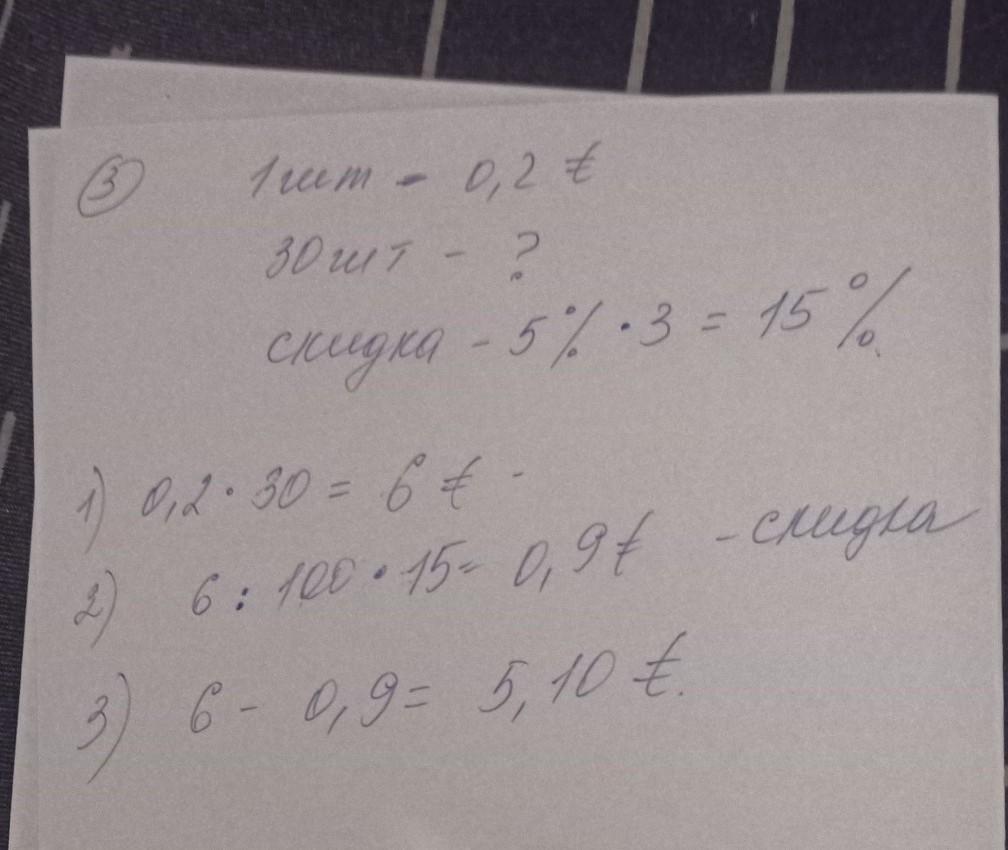 ③ 1 шт - 0,2 €
30 шт - ?
скидка - 5% · 3 = 15%
1) 0,2 · 30 = 6 € -
2) 6 : 100 · 15 = 0,9 € - скидка
3) 6 - 0,9 = 5,10 €.